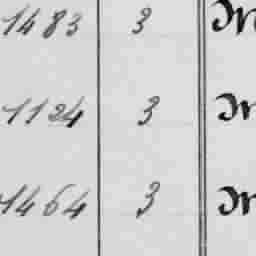 1483 3
1124 3
1464 3